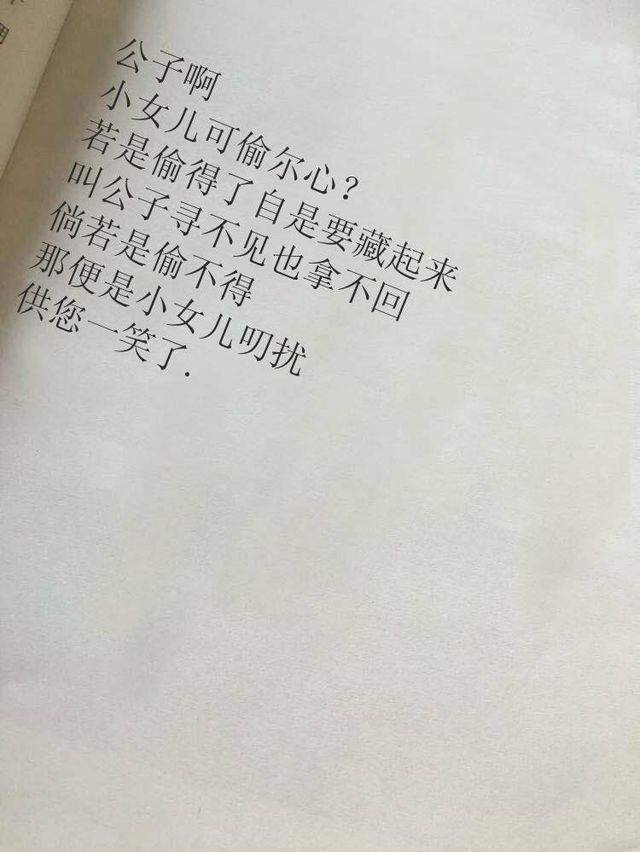 公子啊
小女儿可偷尔心？
若是偷得了自是要藏起来
叫公子寻不见也拿不回
倘若是偷不得
那便是小女儿叨扰
供您一笑了.